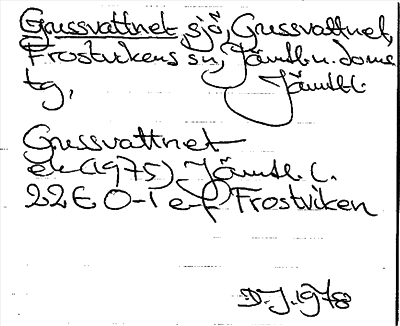 Grussvattnet, sjö, Grussvattnet,
Frostvikens sn, Jämtl. n. doms
tg, Jämtl.
Grussvattnet
ek (1975) Jämtl. l.
22E 0-1 e-f Frostviken
D.J. 1978